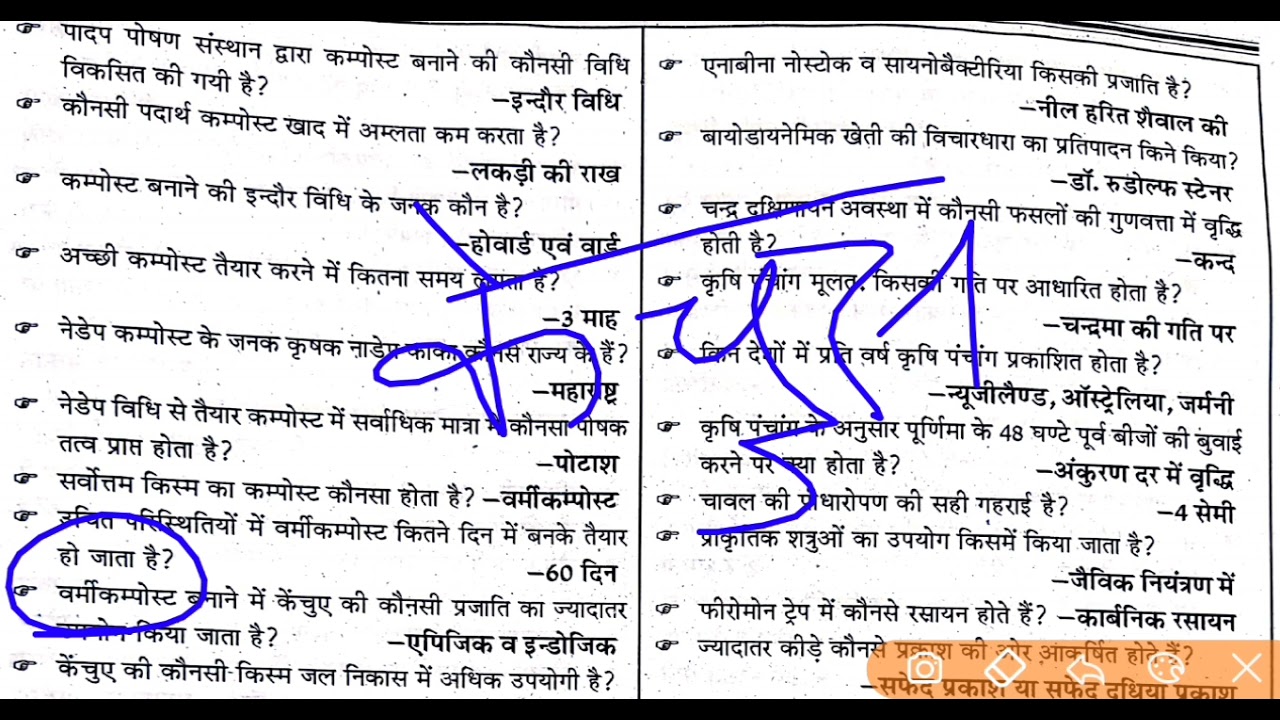 ☞ पादप पोषण संस्थान द्वारा कम्पोस्ट बनाने की कौनसी विधि
विकसित की गयी है?
–इन्दौर विधि
☞ कौनसी पदार्थ कम्पोस्ट खाद में अम्लता कम करता है?
–लकड़ी की राख
☞ कम्पोस्ट बनाने की इन्दौर विधि के जनक कौन है?
–होवार्ड एवं वार्ड
☞ अच्छी कम्पोस्ट तैयार करने में कितना समय लगता है?
–3 माह
☞ नेडेप कम्पोस्ट के जनक कृषक नाडेप काका कौनसे राज्य के हैं?
–महाराष्ट्र
☞ नेडेप विधि से तैयार कम्पोस्ट में सर्वाधिक मात्रा में कौनसा पोषक
तत्व प्राप्त होता है?
–पोटाश
☞ सर्वोत्तम किस्म का कम्पोस्ट कौनसा होता है? –वर्मीकम्पोस्ट
☞ उचित परिस्थितियों में वर्मीकम्पोस्ट कितने दिन में बनके तैयार
हो जाता है?
–60 दिन
☞ वर्मीकम्पोस्ट बनाने में केंचुए की कौनसी प्रजाति का ज्यादातर
उपयोग किया जाता है?
–एपिजिक व इन्डोजिक
☞ केंचुए की कौनसी किस्म जल निकास में अधिक उपयोगी है?
☞ एनाबीना नोस्टोक व सायनोबैक्टीरिया किसकी प्रजाति है?
–नील हरित शैवाल की
☞ बायोडायनेमिक खेती की विचारधारा का प्रतिपादन किने किया?
–डॉ. रुडोल्फ स्टेनर
☞ चन्द्र दक्षिणायन अवस्था में कौनसी फसलों की गुणवत्ता में वृद्धि
होती है?
–कन्द
☞ कृषि पंचांग मूलत: किसकी गति पर आधारित होता है?
–चन्द्रमा की गति पर
☞ किन देशों में प्रति वर्ष कृषि पंचांग प्रकाशित होता है?
–न्यूजीलैण्ड, ऑस्ट्रेलिया, जर्मनी
☞ कृषि पंचांग के अनुसार पूर्णिमा के 48 घण्टे पूर्व बीजों की बुवाई
करने पर क्या होता है?
–अंकुरण दर में वृद्धि
☞ चावल की पौधारोपण की सही गहराई है?
–4 सेमी
☞ प्राकृतिक शत्रुओं का उपयोग किसमें किया जाता है?
–जैविक नियंत्रण में
☞ फीरोमोन ट्रेप में कौनसे रसायन होते हैं? –कार्बनिक रसायन
☞ ज्यादातर कीड़े कौनसे प्रकाश की ओर आकर्षित होते हैं?
–सफेद प्रकाश या सफेद दूधिया प्रकाश